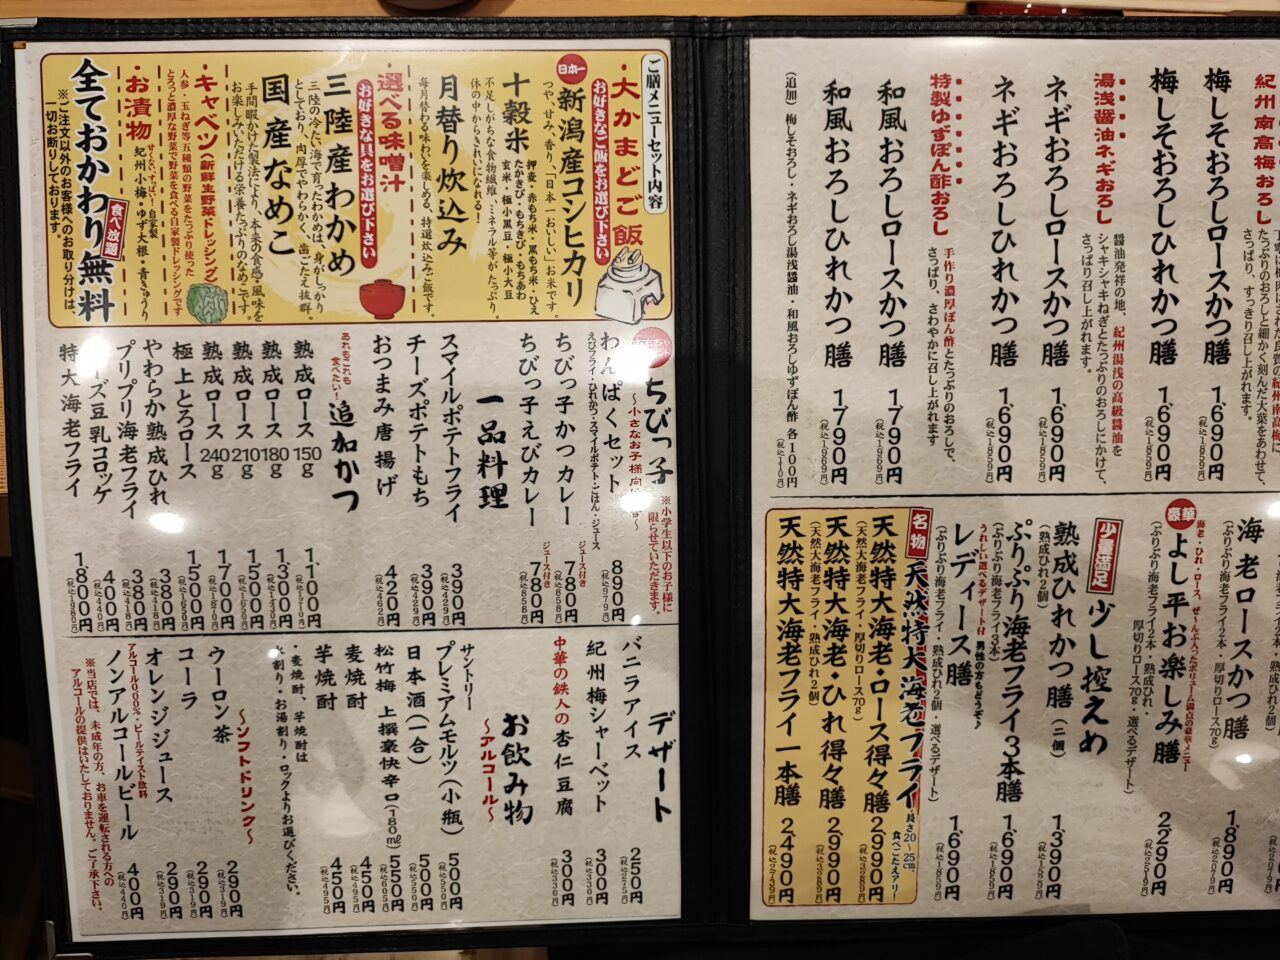 紀州南高梅おろし
梅しそおろしロースかつ膳 1,690円
(税込1859円)
梅しそおろしひれかつ膳 1,690円
(税込1859円)
湯浅醤油ネギおろし
醤油発祥の地、紀州湯浅の高級醤油を
シャキシャキねぎとたっぷりのおろしにかけて、
さっぱり召し上がれます。
ネギおろしロースかつ膳 1,690円
(税込1859円)
ネギおろしひれかつ膳 1,690円
(税込1859円)
特製ゆずぽん酢おろし
手作り濃厚ぽん酢とたっぷりのおろしで、
さっぱり、さわやかに召し上がれます
和風おろしロースかつ膳 1,790円
(税込1969円)
和風おろしひれかつ膳 1,790円
(税込1969円)
(追加)梅しそおろし・ネギおろし湯浅醤油・和風おろしゆずぽん酢 各100円
(税込110円)
海老ロースかつ膳 1,890円
(ぷりぷり海老フライ2本・厚切りロース70g)
(税込2079円)
豪華 よし平お楽しみ膳 2,290円
海老・ひれ・ロース、ぜ〜んぶ入ったボリューム満点の豪華メニュー
(ぷりぷり海老フライ2本・熟成ひれ・
厚切りロース70g・選べるデザート)
少量満足 少し控えめ
熟成ひれかつ膳(二個) 1,390円
(熟成ひれ2個)
ぷりぷり海老フライ3本膳 1,690円
(ぷりぷり海老フライ3本)
(税込1859円)
うれしい選べるデザート付 男性の方もどうぞ♪
レディース膳 1,690円
(ぷりぷり海老フライ・熟成ひれ2個・選べるデザート)
(税込1859円)
名物 天然特大海老フライ 長さ20〜25cm、
食べごたえアリ!
天然特大海老・ロース得々膳 2,990円
(天然大海老フライ・厚切りロース70g)
(税込3289円)
天然特大海老・ひれ得々膳 2,990円
(天然大海老フライ・熟成ひれ2個)
(税込3289円)
天然特大海老フライ一本膳 2,490円
(税込2739円)
ご膳メニューセット内容
・大かまどご飯
お好きなご飯をお選び下さい
日本一 新潟産コシヒカリ
つや、甘み、香り、「日本一おいしい」お米です。
十穀米
押麦・赤もち米・黒もち米・ひえ
たかきび・もちきび・もちあわ
玄米・極小黒豆・極小大豆
不足しがちな食物繊維、ミネラル等がたっぷり。
体の中からきれいになれる!
月替り炊込み
毎月替わる味わいを楽しめる、特選炊込みご飯です。
・選べる味噌汁
お好きな具をお選び下さい
三陸産わかめ
三陸の冷たい海で育ったわかめは、身がしっかり
としており、肉厚でやわらかく、歯ごたえ抜群。
国産なめこ
手間暇かけた製法により、本来の食感・風味を
お楽しみいただける栄養たっぷりのなめこです。
・キャベツ〈新鮮生野菜ドレッシング〉
人参・玉ねぎ等五種類の野菜をたっぷり使った
とろっと濃厚な野菜で野菜を食べる自家製ドレッシングです
・お漬物
せくないすっぱい!自家製
紀州小梅・ゆず大根・青きゅうり
全ておかわり無料 食べ放題
※ご注文以外のお客様へのお取り分けは、
一切お断りしております。
ちびっ子
〜小さなお子様向け〜
※小学生以下のお子様に
限らせていただきます。
わんぱくセット 890円
えびフライ・ひれかつ・スマイルポテト・ごはん・ジュース
(税込979円)
ちびっ子かつカレー ジュース付き 780円
(税込858円)
ちびっ子えびカレー ジュース付き 780円
(税込858円)
一品料理
スマイルポテトフライ 390円
(税込429円)
チーズポテトもち 390円
(税込429円)
おつまみ唐揚げ 420円
(税込462円)
あれもこれも食べたい! 追加かつ
熟成ロース 150g 1,100円
(税込1210円)
熟成ロース 180g 1,300円
(税込1430円)
熟成ロース 210g 1,500円
(税込1650円)
熟成ロース 240g 1,700円
(税込1870円)
極上とろロース 1,500円
(税込1650円)
やわらか熟成ひれ 380円
(税込418円)
プリプリ海老フライ 380円
(税込418円)
ーズ豆乳コロッケ 400円
(税込440円)
特大海老フライ 1,800円
(税込1980円)
デザート
バニラアイス 250円
(税込275円)
紀州梅シャーベット 300円
(税込330円)
中華の鉄人の杏仁豆腐 300円
(税込330円)
お飲み物
〜アルコール〜
サントリー
プレミアムモルツ(小瓶) 500円
(税込550円)
日本酒(一合) 500円
(税込550円)
松竹梅 上撰豪快辛口(180㎖) 550円
(税込605円)
麦焼酎 450円
(税込495円)
芋焼酎 450円
(税込495円)
・麦焼酎、芋焼酎は
水割り・お湯割り・ロックよりお選びください。
〜ソフトドリンク〜
ウーロン茶 290円
(税込319円)
コーラ 290円
(税込319円)
オレンジジュース 290円
(税込319円)
アルコール0.00%・ビールテイスト飲料
ノンアルコールビール 400円
(税込440円)
※当店では、未成年の方、お車を運転される方への
アルコールの提供はいたしておりません。ご了承下さい。